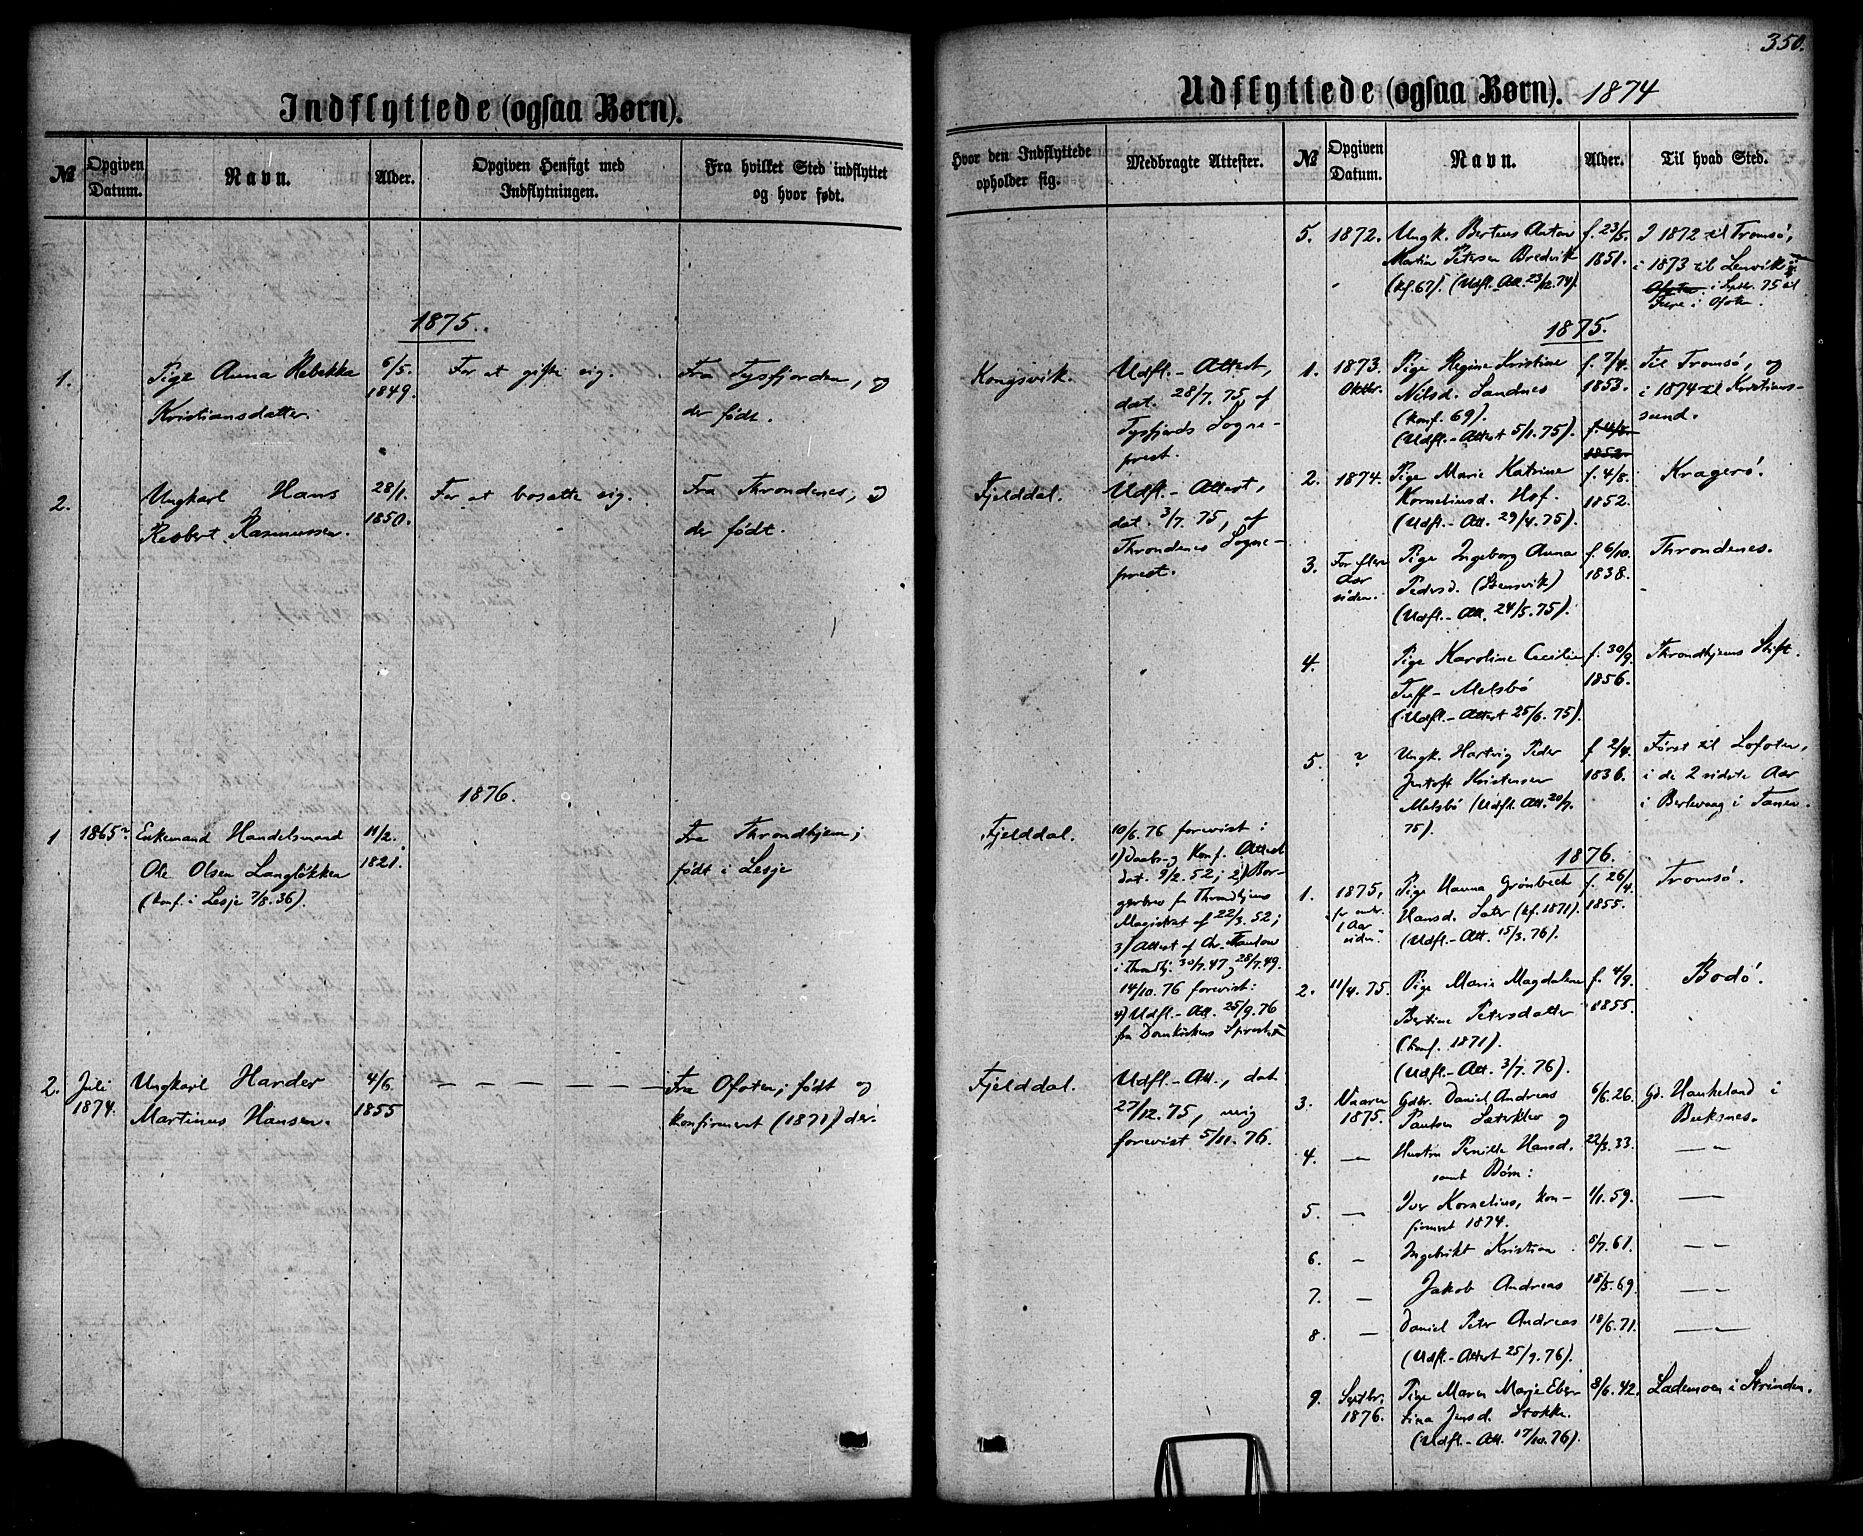 350.
Indflyttede (ogsaa Børn).
№
Opgiven Datum.
Navn.
Alder.
Opgiven Hensigt med Indflytningen.
Fra hvilket Sted indflyttet og hvor født.
1875.
1.
Pige Anna Rebekka
Kristiansdatter.
6/5.
1849.
For at gifte sig.
Fra Tysfjorden, og
der født.
2.
Ungkarl Hans
Robert Rasmussen.
28/1.
1850.
For at bosætte sig.
Fra Throndenes, og
der født.
1876.
1
1865
Enkemand Handelsmand
Ole Olsen Langløkken
(konf. i Lesje 7/8.36).
11/2.
1821.
Fra Throndhjem;
født i Lesje
2.
Juli
1874.
Ungkarl Harder
Martinus Hansen.
4/6.
1855
— — — — — —
Fra Ofoten; født og
konfirmeret (1871) der.
Udflyttede (ogsaa Børn). 1874
Hvor den Indflyttede opholder sig.
Medbragte Attester.
№
Opgiven Datum.
Navn.
Alder.
Til hvad Sted.
Kongsvik.
Udfl.-Attest,
dat. 28/7. 75, af
Tysfjords Sogne-
prest.
Fjelddal.
Udfl.-Attest,
dat. 3/7. 75, af
Throndenes Sogne-
prest.
Fjelddal.
10/6. 76 forevist:
1) Daabs- og Konf. Attest
dat. 9/2. 52; 2) Bor-
gerbrev fr Throndhjems
Magistrat af 22/3. 52;
3) Attest af Chr. Thaulow
i Throndhj. 30/7.47 og 28/7.49.
14/10. 76 forevist:
4) Udfl.-Att. 25/9. 76
fra Domkirkens
Fjelddal.
Udfl.-Att., dat.
27/12. 75, mig
forevist 5/11. 76.
5.
1872.
Ungk. Berteus Anton
Martin Petersen Bredvik
(kf. 67). (Udfl. Att. 23/12. 74).
f. 23/5.
1851.
I 1872 til Tromsø,
i 1873 til Lenvik;
i Septbr. 75 til
i Ofoten.
1875.
1.
1873.
Oktbr.
Pige Regine Kristine
Nilsd. Sandnes
(konf. 69).
(Udfl.-Attest 5/1. 75).
f. 7/4.
1853.
Til Tromsø, og
i 1874 til Kristians-
sund.
f. 4/8.
1852.
2.
1874.
Pige Marie Katrine
Korneliusd. Hof.
(Udfl.-Att. 29/4. 75).
f. 4/8.
1852.
Kragerø.
3.
For flere
Aar
siden.
Pige Ingeborg Anna
Pedersd. (Stensvik)
(Udfl.-Att. 24/5. 75).
f. 6/10.
1838.
Throndenes.
4.
Pige Karoline Cecilie
Tuff-Melsbø
(Udfl.-Attest 25/6. 75).
f. 30/9.
1856.
Throndhjems Stift.
5.
?
Ungk. Hartvig Peder
Jentoft Kristensen
Melsbø (Udfl. Att. 20/7.
75).
f. 2/4.
1836.
Først til Lofoten,
i de 2 sidste Aar
i Berlevaag i Tanen.
1876.
1.
1875,
for
1 Aar
siden.
Pige Hanna Grønbech
Hansd. Sæter (kf. 1871).
(Udfl.-Att. 15/3. 76).
f. 26/4.
1855.
Tromsø.
2.
11/4. 75.
Pige Maria Magdalena
Bertine Petersdatter
(konf. 1871).
(Udfl.-Att. 3/7. 76).
f. 4/9.
1855.
Bodø.
3.
Vaaren
1875.
Gdbr. Daniel Andreas
Paulsen Sæterklev og
6/6. 26.
Gd. Haukeland i
Buksnes.
4.
—
Hustru Pernille Hansd.
samt Børn:
22/3. 33.
— —
5.
—
Iver Kornelius, kon-
firmeret 1874.
1/1. 59.
— —
6.
—
Ingebrikt Kristian
8/7. 61.
— —
7.
—
Jakob Andreas
18/5. 69.
— —
8
—
Daniel Peter Andreas
(Udfl.-Attest 25/9. 76).
18/6. 71.
— —
9.
Septbr.
1876.
Pige Maren Marje Eber-
tina Jensd. Stokke.
(Udfl.-Att. 17/10. 76).
8/6. 42.
Lademoen i Strinden.